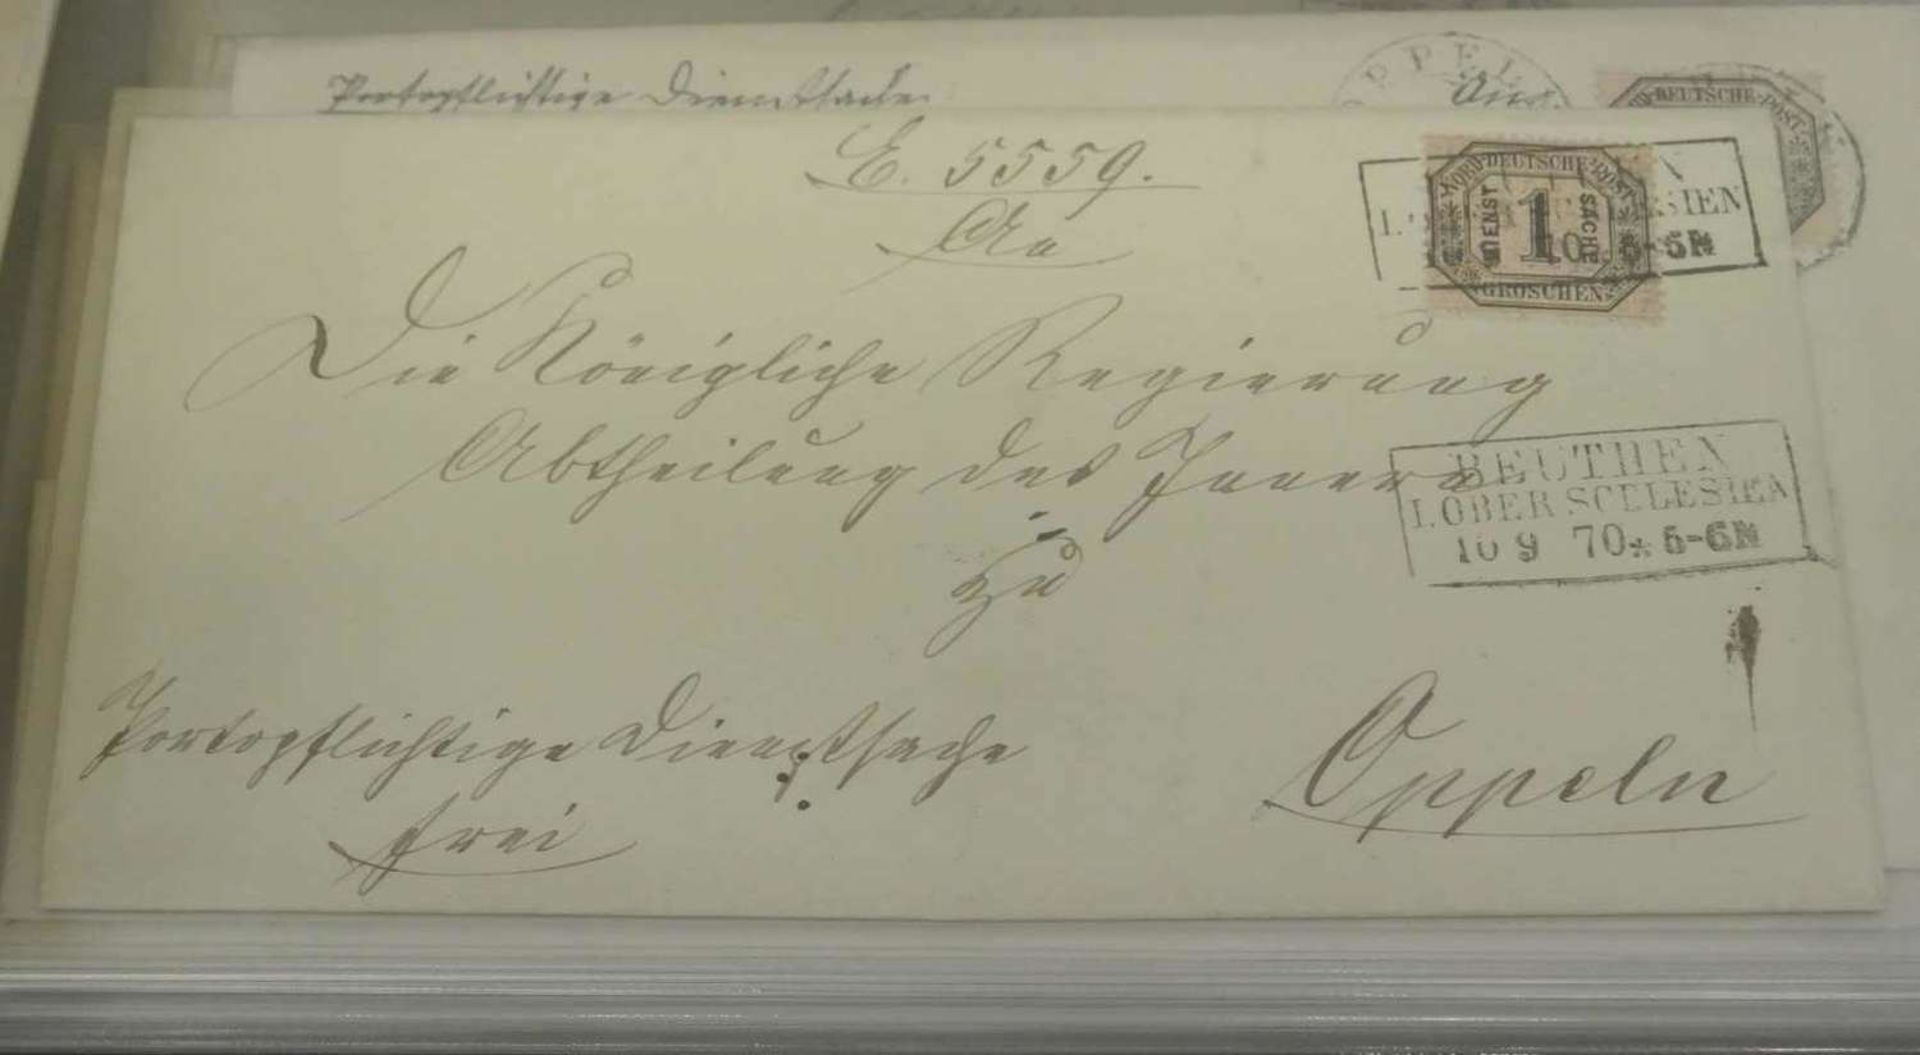 Portopflichtige Dienstsache
OPPEL
An
DEUTSCHE POST
E. 5559.
An
NORDDEUTSCHE POST
DIENST 1 SACHE
GROSCHEN
Die Königliche Regierung
Abtheilung des Innern
BEUTHEN
I. OBER SCHLESIEN
10 9 70 * 5-6N
zu
Portopflichtige Dienstsache
frei
Oppeln